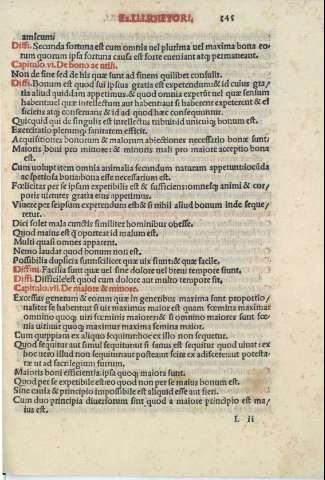 EX.LI.RHETORI. 545
amicum.
Diffi. Secunda fortuna est cum omnia vel plurima vel maxima bona eo
rum quorum ipsa fortuna causa est forte eueniant atq; permaneant.
Capitulo.vi. De bono ac utili.
Non de fine sed de his quæ sunt ad finem quilibet consulit.
Diffi. Bonum est quod sui ipsius gratia est expetendum: & id cuius gra/
tia aliud quiddam appetimus. & quod omnia expetunt uel quæ sensum
habent uel quæ intellectum aut habent aut si haberent expeterent & ef
ficiens atq; conseruans/ & id ad quod hæc consequuntur.
Quicquid qui de singulis est intellectus tribuid unicuiq; bonum est.
Exercitatio plerumq; sanitatem efficit.
Acquisitiones bonorum & malorum abiectiones necessario bonæ sunt/
Maioris boni pro minore: & minoris mali pro maiore acceptio bona
est.
Cum uoluptatem omnia animalia secundum naturam appetant
ac speciosa bonis bona esse necessarium est.
Fœlicitas per se ipsum expetibilis est & sufficiens: omnesq; animi & cor/
poris uirtutes gratia eius appetimus.
Viuere per se ipsum expetendum est: & si nihil aliud bonum inde seque/
retur.
Dici solet mala cunctis similiter hominibus obesse.
Quod maius est q̃ oporteat id malum est.
Multi quasi omnes apparent.
Nemo laudat quod bonum non est.
Possibilia dupliciter sunt: scilicet quæ uix fiunt: & quæ facile.
Diffini. Facilia sunt quæ uel sine dolore uel breui tempore fiunt.
Diffi. Difficile est quod cum dolore aut multo tempore fit.
Capitulo.vii. De maiore & minore.
Excessus generum & eorum quæ in generibus maxima sunt proportio/
naliter se habent ut si uir maximus maior est quam fœmina maxima:
omnino quoq; uiri fœminis maiores: & si omnino maiores sunt fœ=
nis uiri uir quoq; maximus maxima femina maior.
Cum quippiam ex aliquo sequitur: hoc ex illo non sequitur.
Quod sequitur aut simul sequitur ut si sanus est sequitur quod uiuat: ex
hoc uero illud non sequitur: aut postea ut scire ex adiscere: aut potesta
te ut ad sacrilegium furtum.
Maioris boni efficientia ipsa quoq; maiora sunt.
Quod per se expetibile est: eo quod non per se maius bonum est.
Sine causa & principio impossibile est aliquid esse aut fieri.
Cum duo principia diuersorum sint quod a maiore principio est ma/
ius est.
L ii